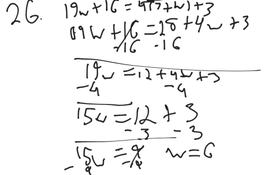 26. 19w+16=4(7+w)+3
19w+16=28+4w+3
-16 -16
19w=12+4w+3
-4 -4
15w=12+3
-3 -3
15w=9 w=6